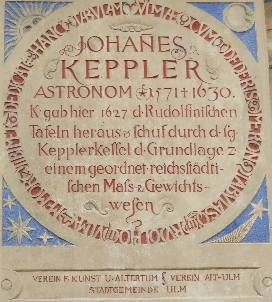 JOHANES
KEPPLER
ASTRONOM 1571+1630.
K. gab hier 1627 d. Rudolfinischen
Tafeln heraus & schuf durch d. sg.
Kepplerkessel d. Grundlage z.
einem geordnet. reichstädti-
schen Mass- & Gewichts-
wesen
VEREIN F. KUNST U. ALTERTUM VEREIN ALT-ULM
STADTGEMEINDE ULM